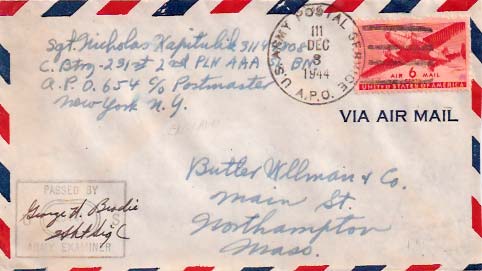 Sgt. Nicholas Kapitulik
C. Btry-
A.P.O. 654 c/o Postmaster
New York N.Y.
U.S. ARMY POSTAL SERVICE
111
DEC
3
1944
A.P.O.
AIR 6 MAIL
UNITED STATES OF AMERICA
VIA AIR MAIL
Butler Ullman & Co.
Main St.
Northampton
Mass.
PASSED BY
S
George H. Brodie
ARMY EXAMINER